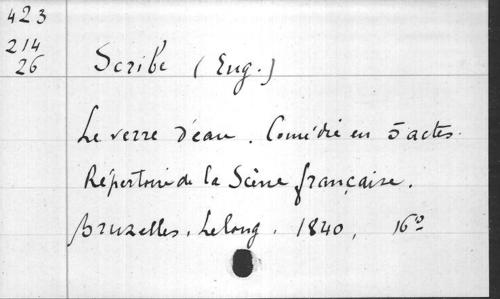 423
214
26
Scribe (Eug.)
Le verre d'eau. Comédie en 5 actes.
Répertoire de la Scène française.
Bruxelles, Lelong, 1840, 16º